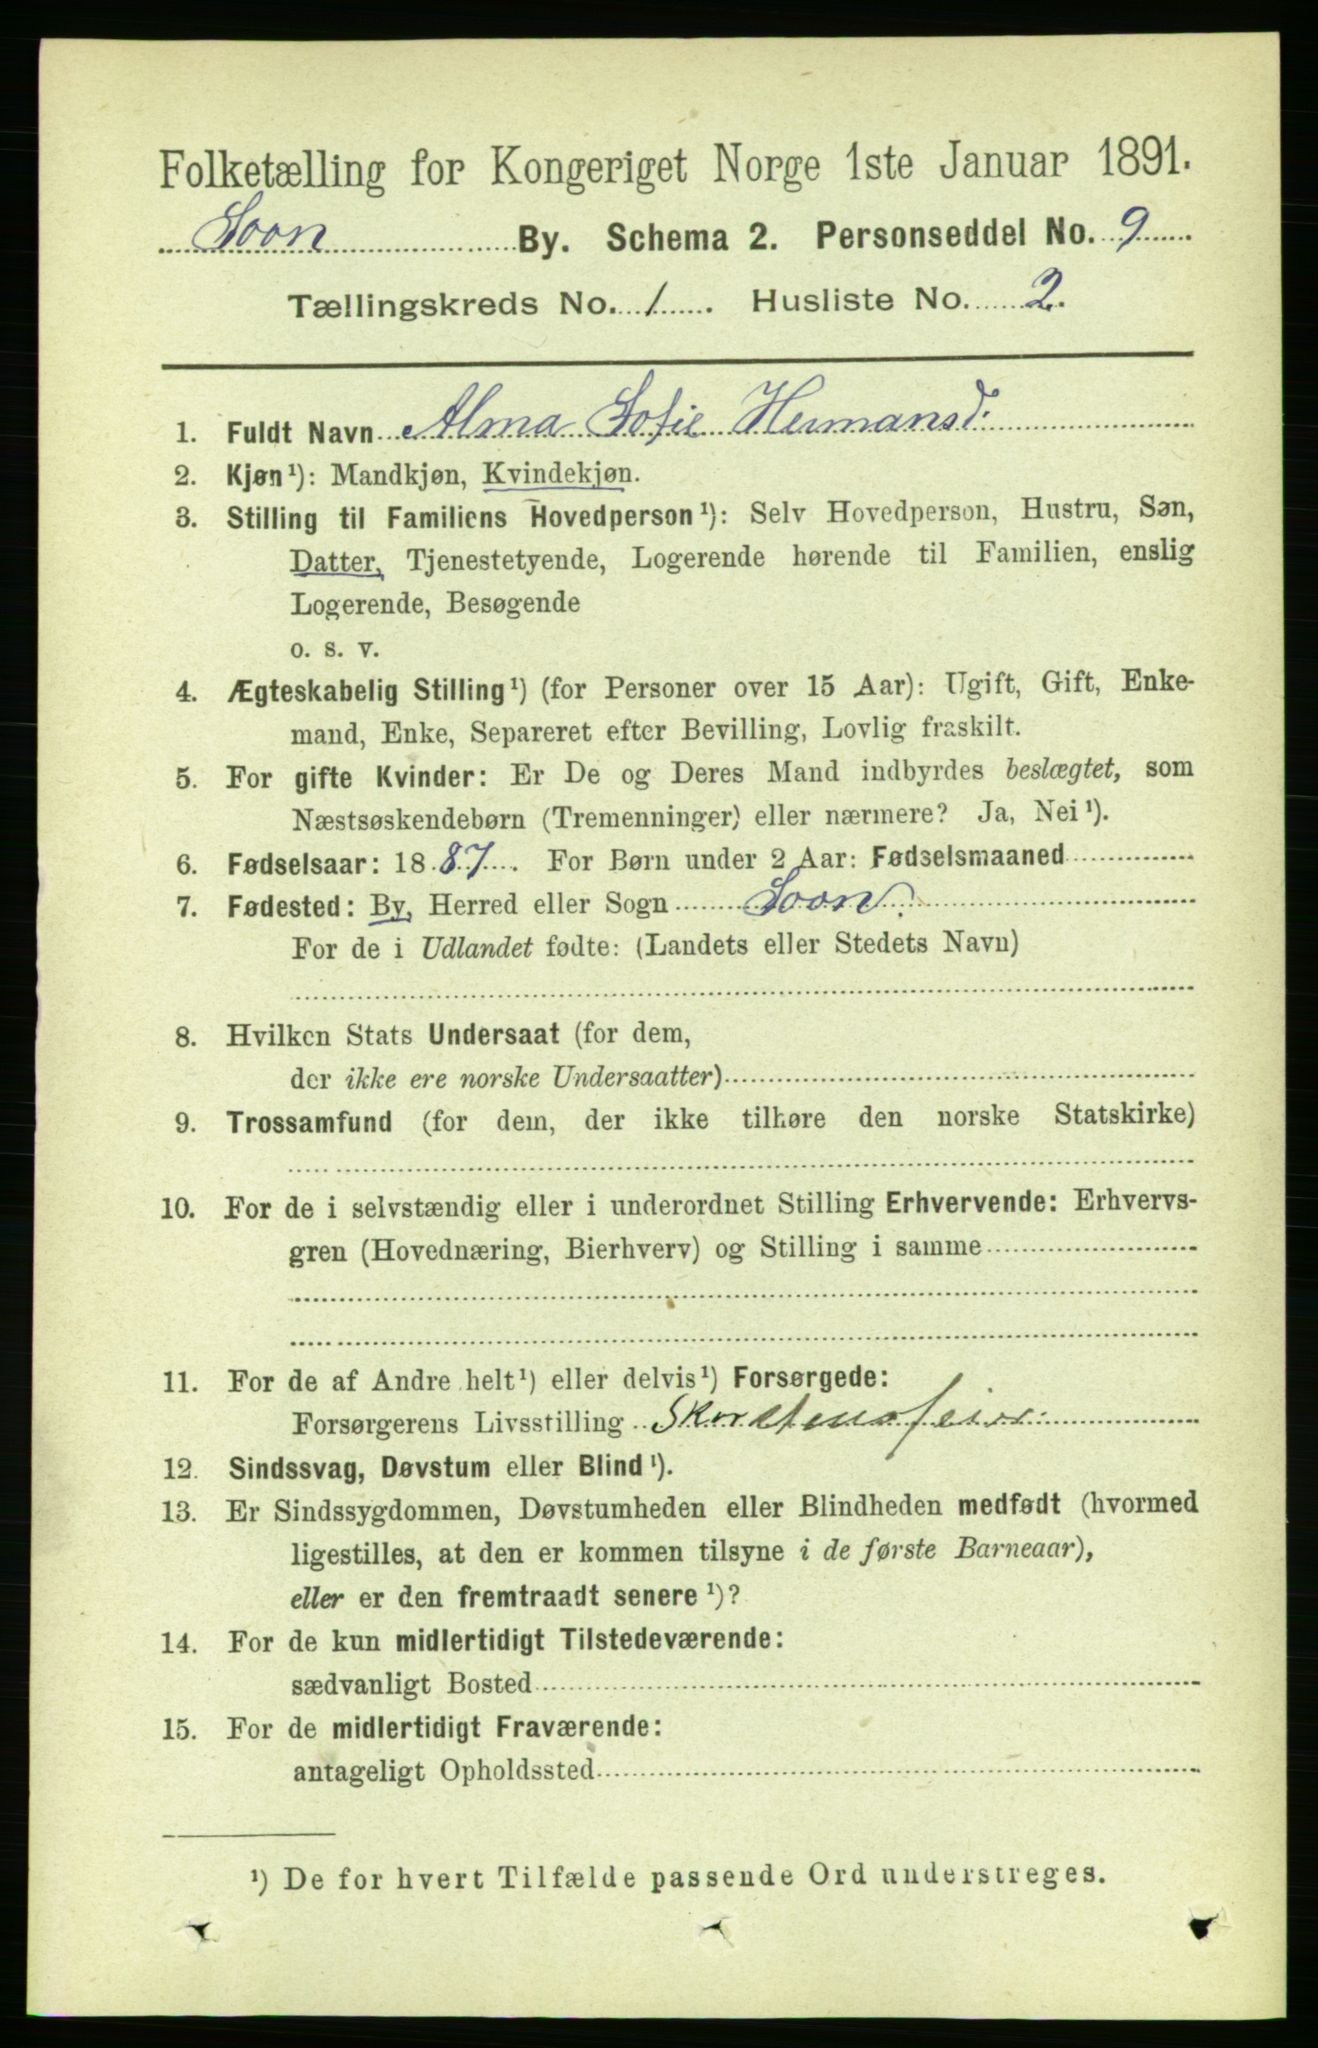 Folketælling for Kongeriget Norge 1ste Januar 1891.
Soon By. Schema 2. Personseddel No. 9
Tællingskreds No. 1. Husliste No. 2.
1. Fuldt Navn Alma Sofie Hermansd:
2. Kjøn¹): Mandkjøn, Kvindekjøn.
3. Stilling til Familiens Hovedperson¹): Selv Hovedperson, Hustru, Søn,
Datter, Tjenestetyende, Logerende hørende til Familien, enslig
Logerende, Besøgende
o. s. v.
4. Ægteskabelig Stilling¹) (for Personer over 15 Aar): Ugift, Gift, Enke-
mand, Enke, Separeret efter Bevilling, Lovlig fraskilt.
5. For gifte Kvinder: Er De og Deres Mand indbyrdes beslægtet, som
Næstsøskendebørn (Tremenninger) eller nærmere? Ja, Nei¹).
6. Fødselsaar: 1887. For Børn under 2 Aar: Fødselsmaaned
7. Fødested: By, Herred eller Sogn Soon.
For de i Udlandet fødte: (Landets eller Stedets Navn)
8. Hvilken Stats Undersaat (for dem,
der ikke ere norske Undersaatter)
9. Trossamfund (for dem, der ikke tilhøre den norske Statskirke)
10. For de i selvstændig eller i underordnet Stilling Erhvervende: Erhvervs-
gren (Hovednæring, Bierhverv) og Stilling i samme
11. For de af Andre helt¹) eller delvis¹) Forsørgede:
Forsørgerens Livsstilling Skorstensfeier.
12. Sindssvag, Døvstum eller Blind¹).
13. Er Sindssygdommen, Døvstumheden eller Blindheden medfødt (hvormed
ligestilles, at den er kommen tilsyne i de første Barneaar),
eller er den fremtraadt senere¹)?
14. For de kun midlertidigt Tilstedeværende:
sædvanligt Bosted
15. For de midlertidigt Fraværende:
antageligt Opholdssted
¹) De for hvert Tilfælde passende Ord understreges.